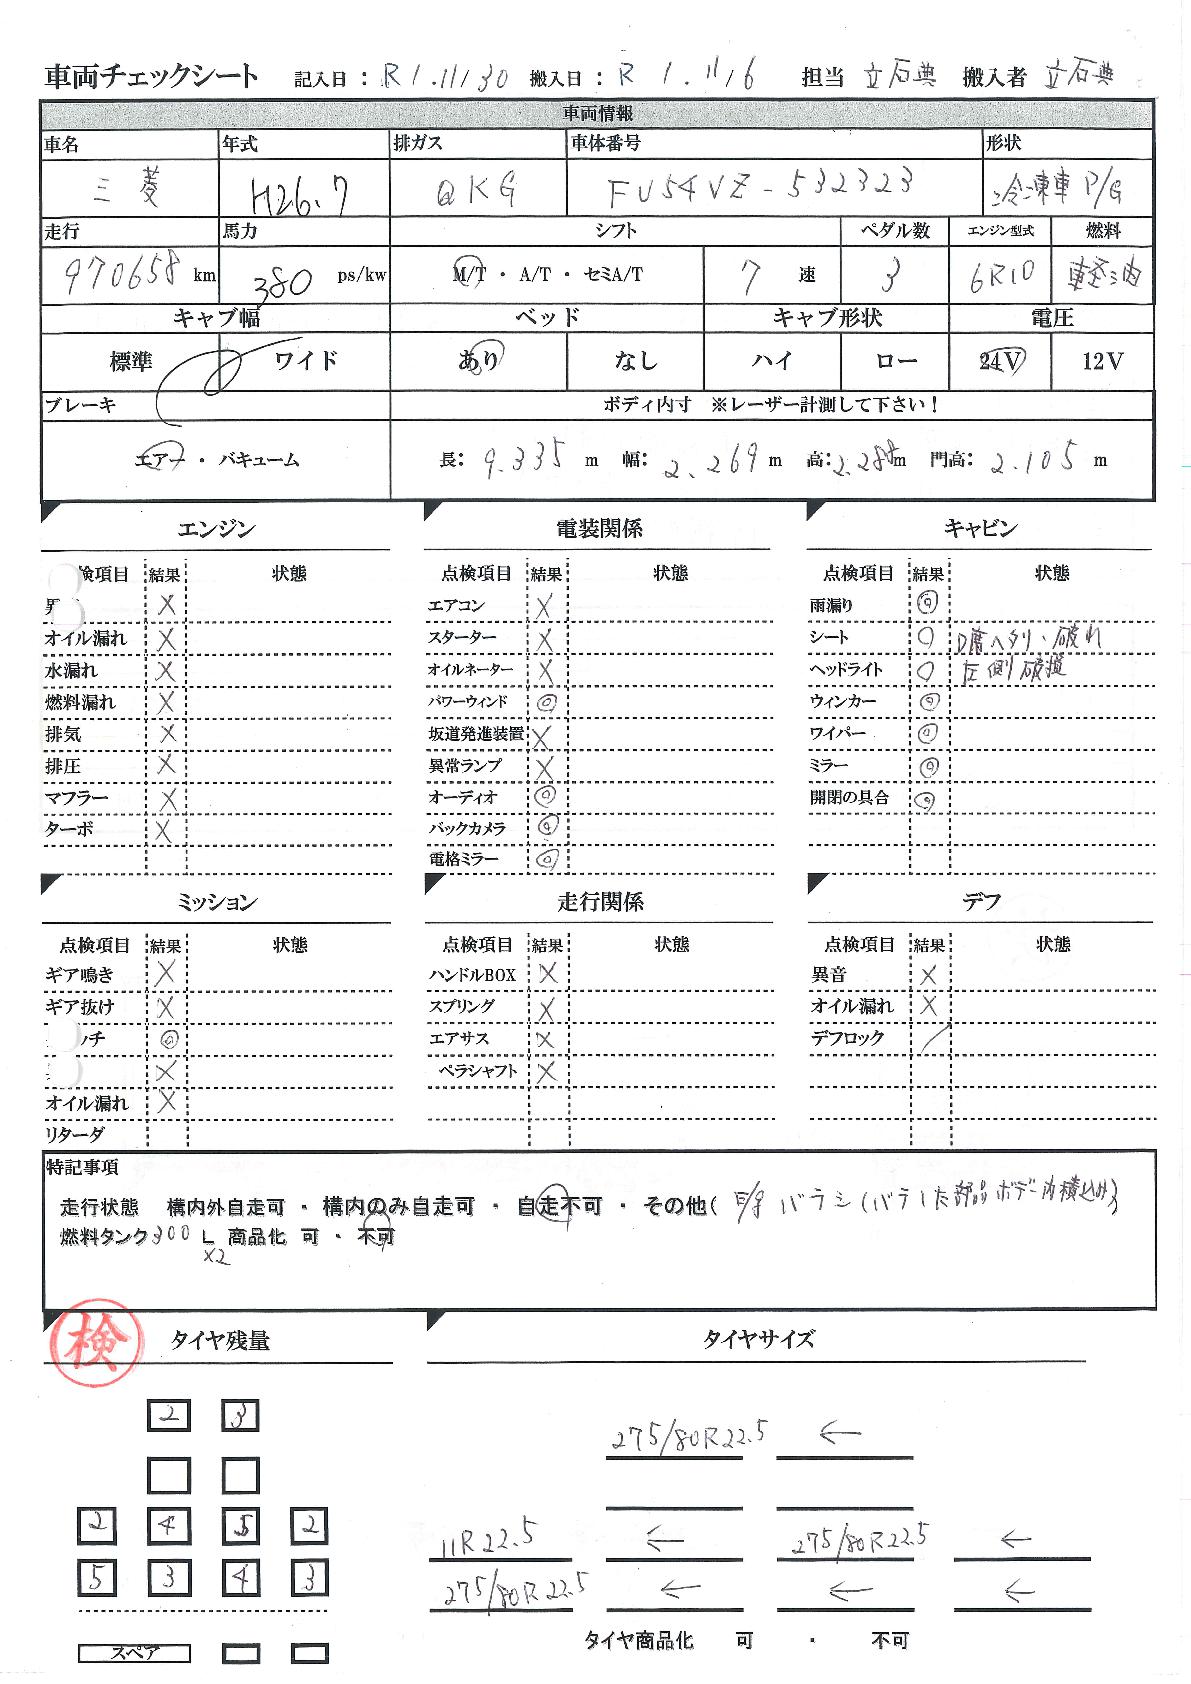 車両チェックシート 記入日：R1.11/30 搬入日：R 1.11/6 担当 立石典 搬入者 立石典
車両情報
車名 年式 排ガス 車体番号 形状
三菱 H26.7 QKG FU54VZ-532323 冷凍車 P/G
走行 馬力 シフト ペダル数 エンジン型式 燃料
970658 km 380 ps/kw M/T ・ A/T ・ セミA/T 7 速 3 6R10 軽油
キャブ幅 ベッド キャブ形状 電圧
標準 ワイド あり なし ハイ ロー 24V 12V
ブレーキ ボディ内寸 ※レーザー計測して下さい！
エアー ・ バキューム 長：9.335 m 幅：2.269 m 高：2.288m 門高：2.105 m
エンジン 電装関係 キャビン
検項目 結果 状態 点検項目 結果 状態 点検項目 結果 状態
× エアコン × 雨漏り ◎
オイル漏れ × スターター × シート ○ D席ヘタリ・破れ
水漏れ × オイルネーター × ヘッドライト ○ 左側破損
燃料漏れ × パワーウィンド ◎ ウィンカー ◎
排気 × 坂道発進装置 × ワイパー ◎
排圧 × 異常ランプ × ミラー ◎
マフラー × オーディオ ◎ 開閉の具合 ◎
ターボ × バックカメラ ◎
電格ミラー ◎
ミッション 走行関係 デフ
点検項目 結果 状態 点検項目 結果 状態 点検項目 結果 状態
ギア鳴き × ハンドルBOX × 異音 ×
ギア抜け × スプリング × オイル漏れ ×
ッチ ◎ エアサス × デフロック ／
× ペラシャフト ×
オイル漏れ ×
リターダ
特記事項
走行状態 構内外自走可 ・ 構内のみ自走可 ・ 自走不可 ・ その他( バラシ(バラした部品ボデー内積込み)
燃料タンク300 L 商品化 可 ・ 不可
×2
検 タイヤ残量 タイヤサイズ
2 3 275/80R22.5 ←
2 4 5 2 11R22.5 ← 275/80R22.5 ←
5 3 4 3 275/80R22.5 ← ← ←
スペア タイヤ商品化 可 ・ 不可